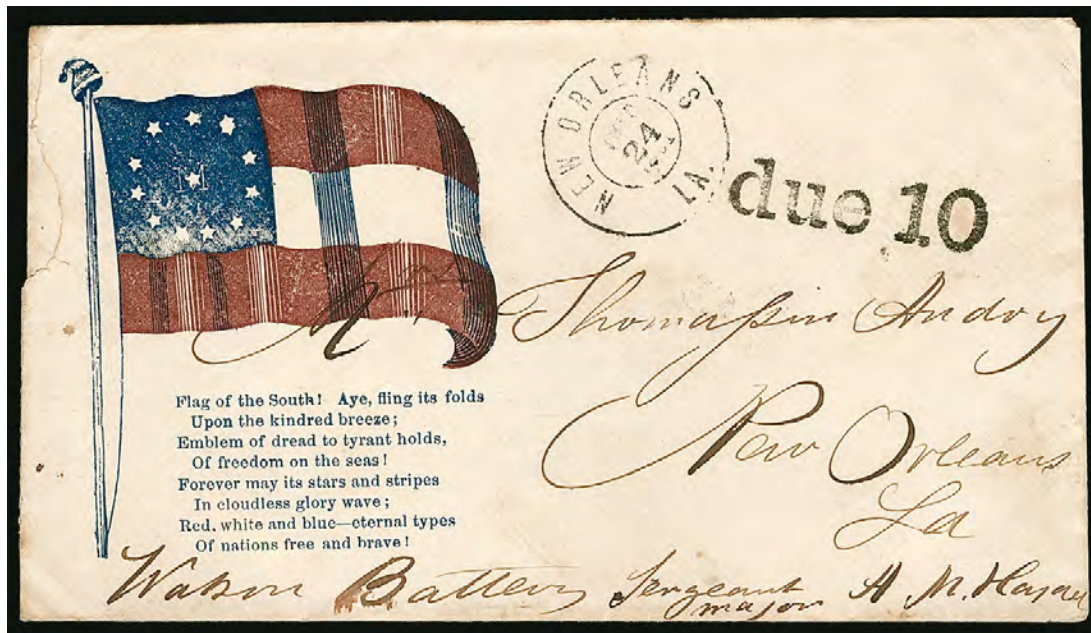 NEW ORLEANS LA.
24
due 10
Mrs Thomassin Andry
New Orleans
La
Flag of the South! Aye, fling its folds
Upon the kindred breeze;
Emblem of dread to tyrant holds,
Of freedom on the seas!
Forever may its stars and stripes
In cloudless glory wave;
Red, white and blue—eternal types
Of nations free and brave!
Watson Battery Sergeant major H M.